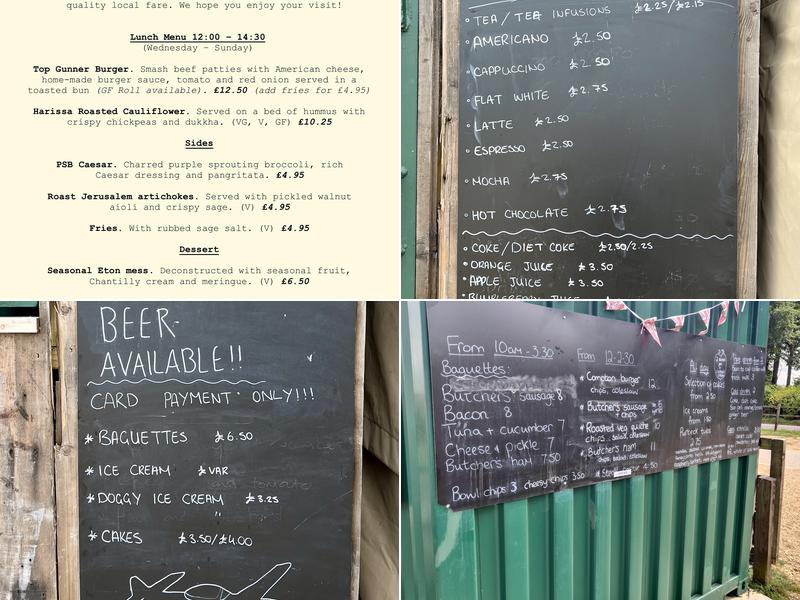 quality local fare. We hope you enjoy your visit!
Lunch Menu 12:00 – 14:30
(Wednesday – Sunday)
Top Gunner Burger. Smash beef patties with American cheese,
home-made burger sauce, tomato and red onion served in a
toasted bun (GF Roll available). £12.50 (add fries for £4.95)
Harissa Roasted Cauliflower. Served on a bed of hummus with
crispy chickpeas and dukkha. (VG, V, GF) £10.25
Sides
PSB Caesar. Charred purple sprouting broccoli, rich
Caesar dressing and pangritata. £4.95
Roast Jerusalem artichokes. Served with pickled walnut
aioli and crispy sage. (V) £4.95
Fries. With rubbed sage salt. (V) £4.95
Dessert
Seasonal Eton mess. Deconstructed with seasonal fruit,
Chantilly cream and meringue. (V) £6.50
TEA / TEA INFUSIONS £2.25/£2.15
AMERICANO £2.50
CAPPUCCINO £2.50
FLAT WHITE £2.75
LATTE £2.50
ESPRESSO £2.50
MOCHA £2.75
HOT CHOCOLATE £2.75
COKE/DIET COKE £2.50/2.25
ORANGE JUICE £3.50
APPLE JUICE £3.50
BEER
AVAILABLE!!
CARD PAYMENT ONLY!!!
* BAGUETTES £6.50
* ICE CREAM £VAR
* DOGGY ICE CREAM £3.25
* CAKES £3.50/£4.00
From 10am-3.30
Baguettes:
Butchers Sausage 8
Bacon 8
Tuna + cucumber 7
Cheese + pickle 7
Butchers ham 7.50
Bowl chips 3 cheesy chips 3.50
From 12-2.30
Compton burger 12
chips, coleslaw
Butchers sausage
+ chips
Roasted veg quiche 10
chips, salad, coleslaw
Butchers Ham
chips, salad, coleslaw
4.50
All day
Selection of cakes
from 2.50
Ice creams
from 1.50